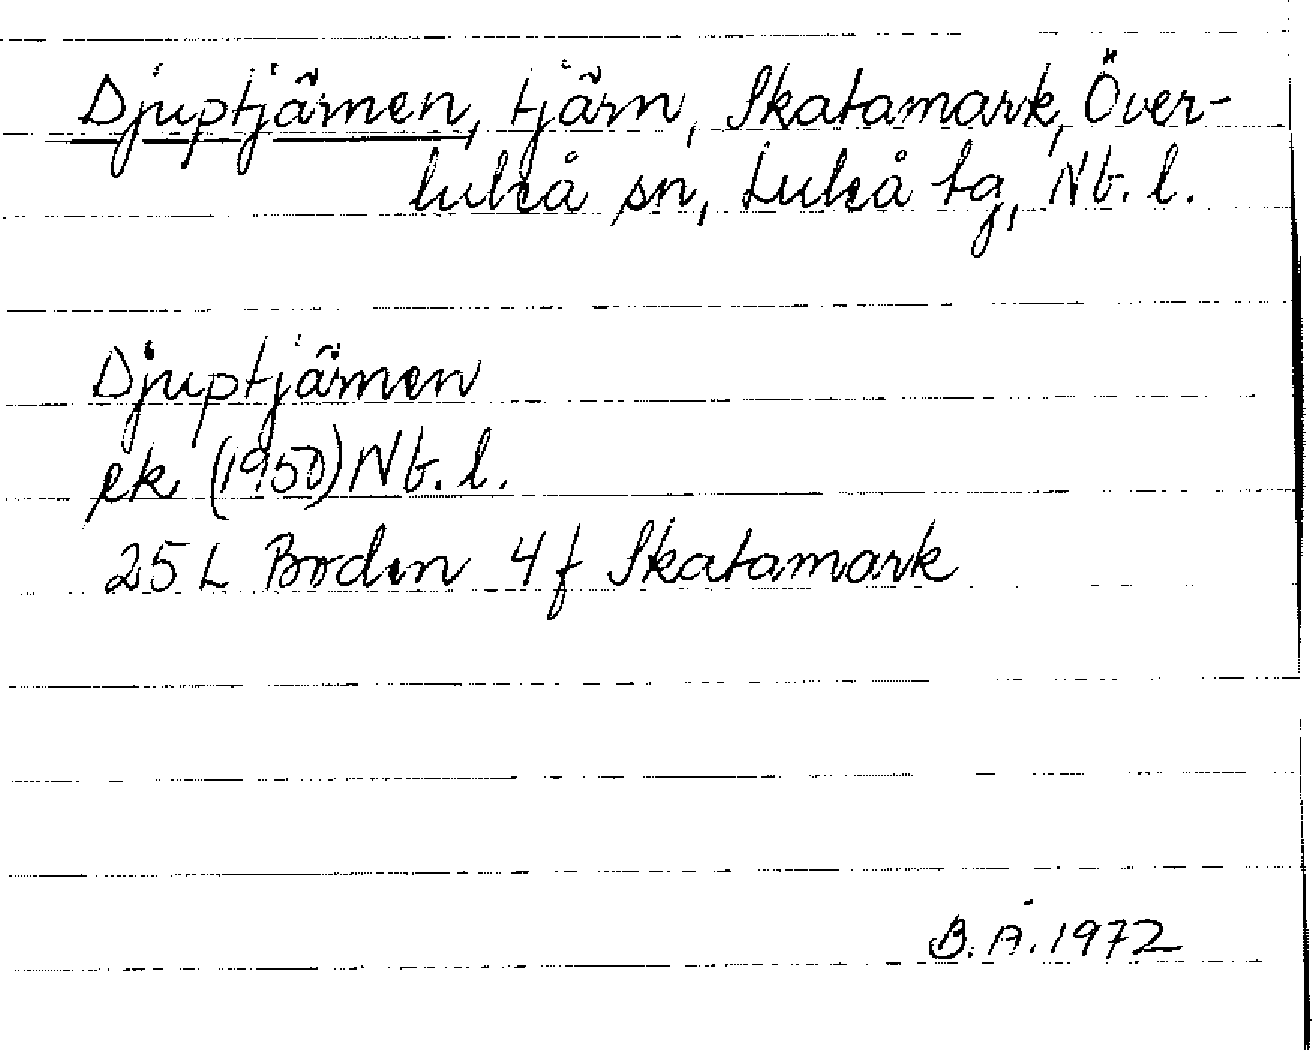 Djuptjärnen, tjärn, Skatamark, Över-
luleå sn, Luleå tg, Nb. l.
Djuptjärnen
ek (1950) Nb. l.
25 L Boden 4 f Skatamark
B. Å. 1972